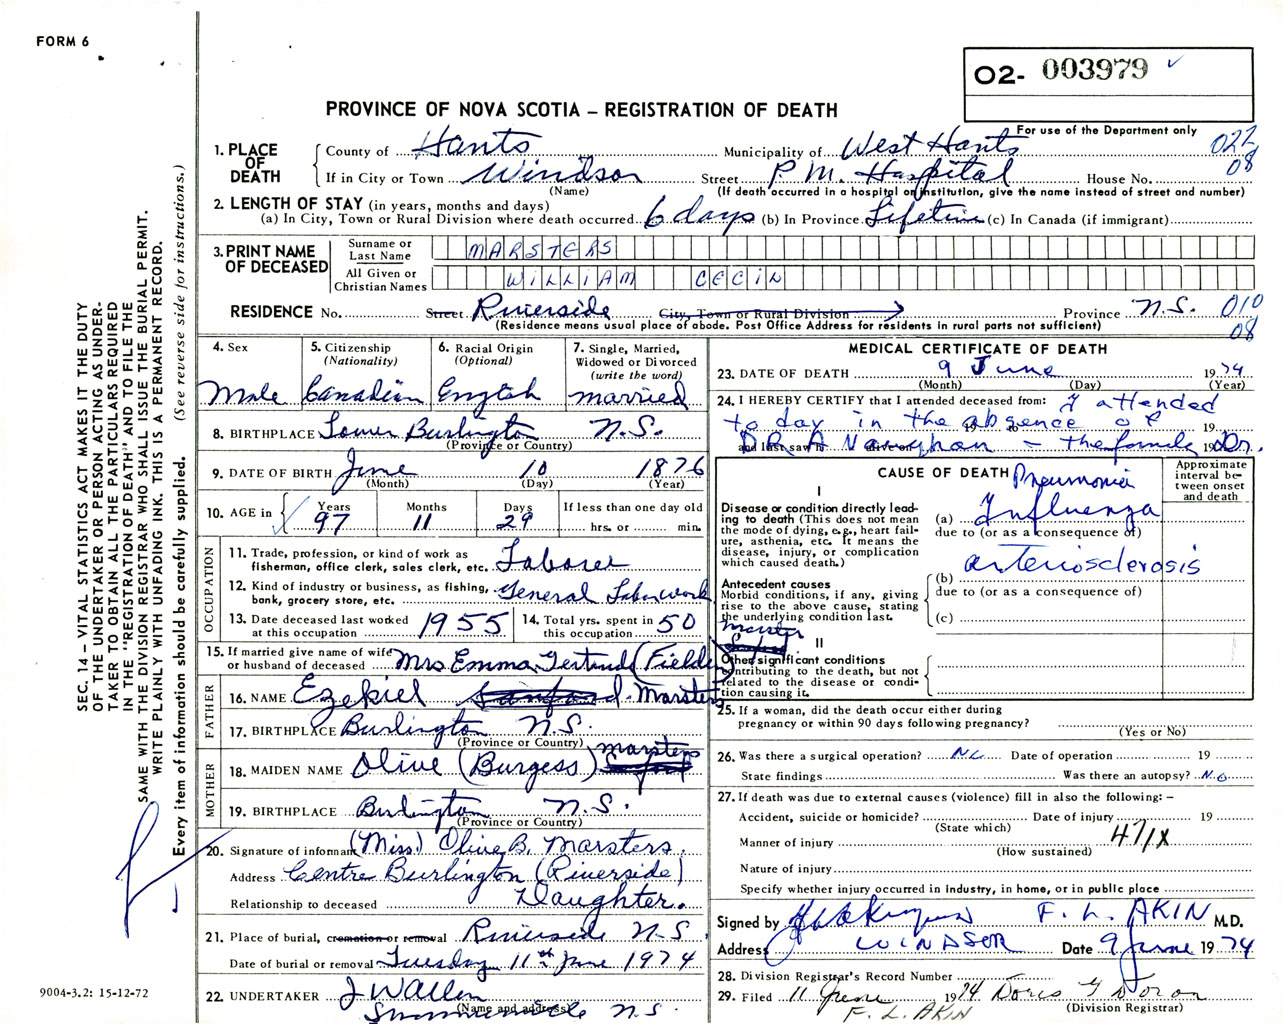 FORM 6
O2- 003979 ✓
For use of the Department only
PROVINCE OF NOVA SCOTIA – REGISTRATION OF DEATH
1. PLACE OF DEATH
County of Hants Municipality of West Hants 022
If in City or Town Windsor Street P.M. Hospital House No. 08
(Name) (If death occurred in a hospital or institution, give the name instead of street and number)
2. LENGTH OF STAY (in years, months and days)
(a) In City, Town or Rural Division where death occurred 6 days (b) In Province Lifetime (c) In Canada (if immigrant)
3. PRINT NAME OF DECEASED
Surname or Last Name MARSTERS
All Given or Christian Names WILLIAM CECIL
RESIDENCE No. Street Riverside City, Town or Rural Division Province N.S. 010
(Residence means usual place of abode. Post Office Address for residents in rural parts not sufficient) 08
4. Sex
Male
5. Citizenship (Nationality)
Canadian
6. Racial Origin (Optional)
English
7. Single, Married, Widowed or Divorced (write the word)
married
8. BIRTHPLACE Lower Burlington N.S.
(Province or Country)
9. DATE OF BIRTH June 10 1876
(Month) (Day) (Year)
10. AGE in Years Months Days If less than one day old
97 11 29 hrs. or min.
OCCUPATION
11. Trade, profession, or kind of work as fisherman, office clerk, sales clerk, etc. Laborer
12. Kind of industry or business, as fishing, bank, grocery store, etc. General Labor work
13. Date deceased last worked at this occupation 1955
14. Total yrs. spent in this occupation 50
15. If married give name of wife or husband of deceased Mrs. Emma Gertrude (Fielder) Marsters
FATHER
16. NAME Ezekiel Marsters
17. BIRTHPLACE Burlington N.S.
(Province or Country)
MOTHER
18. MAIDEN NAME Olive (Burgess) Marsters
19. BIRTHPLACE Burlington N.S.
(Province or Country)
20. Signature of informant (Miss) Olive B. Marsters
Address Centre Burlington (Riverside)
Relationship to deceased Daughter.
21. Place of burial, cremation or removal Riverside N.S.
Date of burial or removal Tuesday 11th June 1974
22. UNDERTAKER J Wallen
(Name and address) N.S.
MEDICAL CERTIFICATE OF DEATH
23. DATE OF DEATH 9 June 1974
(Month) (Day) (Year)
24. I HEREBY CERTIFY that I attended deceased from: I attended
today in the absence of 19
and last saw h alive on DR A Vaughan – the family Dr. 19
CAUSE OF DEATH
Approximate interval between onset and death
I
Disease or condition directly leading to death (This does not mean the mode of dying, e.g., heart failure, asthenia, etc. It means the disease, injury, or complication which caused death.)
Pneumonia
(a) Influenza
due to (or as a consequence of)
Antecedent causes
Morbid conditions, if any, giving rise to the above cause, stating the underlying condition last.
arteriosclerosis
(b)
due to (or as a consequence of)
(c)
II
Other significant conditions contributing to the death, but not related to the disease or condition causing it.
25. If a woman, did the death occur either during pregnancy or within 90 days following pregnancy?
(Yes or No)
26. Was there a surgical operation? No Date of operation 19
State findings Was there an autopsy? No
27. If death was due to external causes (violence) fill in also the following: –
Accident, suicide or homicide? Date of injury 19
(State which)
Manner of injury 471X
(How sustained)
Nature of injury
Specify whether injury occurred in industry, in home, or in public place
Signed by F. L. AKIN M.D.
Address WINDSOR Date 9 June 1974
28. Division Registrar's Record Number
29. Filed 11 June 1974 Doris G Doran
F. L. AKIN (Division Registrar)
SEC. 14 – VITAL STATISTICS ACT MAKES IT THE DUTY
OF THE UNDERTAKER OR PERSON ACTING AS UNDER-
TAKER TO OBTAIN ALL THE PARTICULARS REQUIRED
IN THE "REGISTRATION OF DEATH" AND TO FILE THE
SAME WITH THE DIVISION REGISTRAR WHO SHALL ISSUE THE BURIAL PERMIT.
WRITE PLAINLY WITH UNFADING INK. THIS IS A PERMANENT RECORD.
Every item of information should be carefully supplied. (See reverse side for instructions.)
9004-3.2: 15-12-72